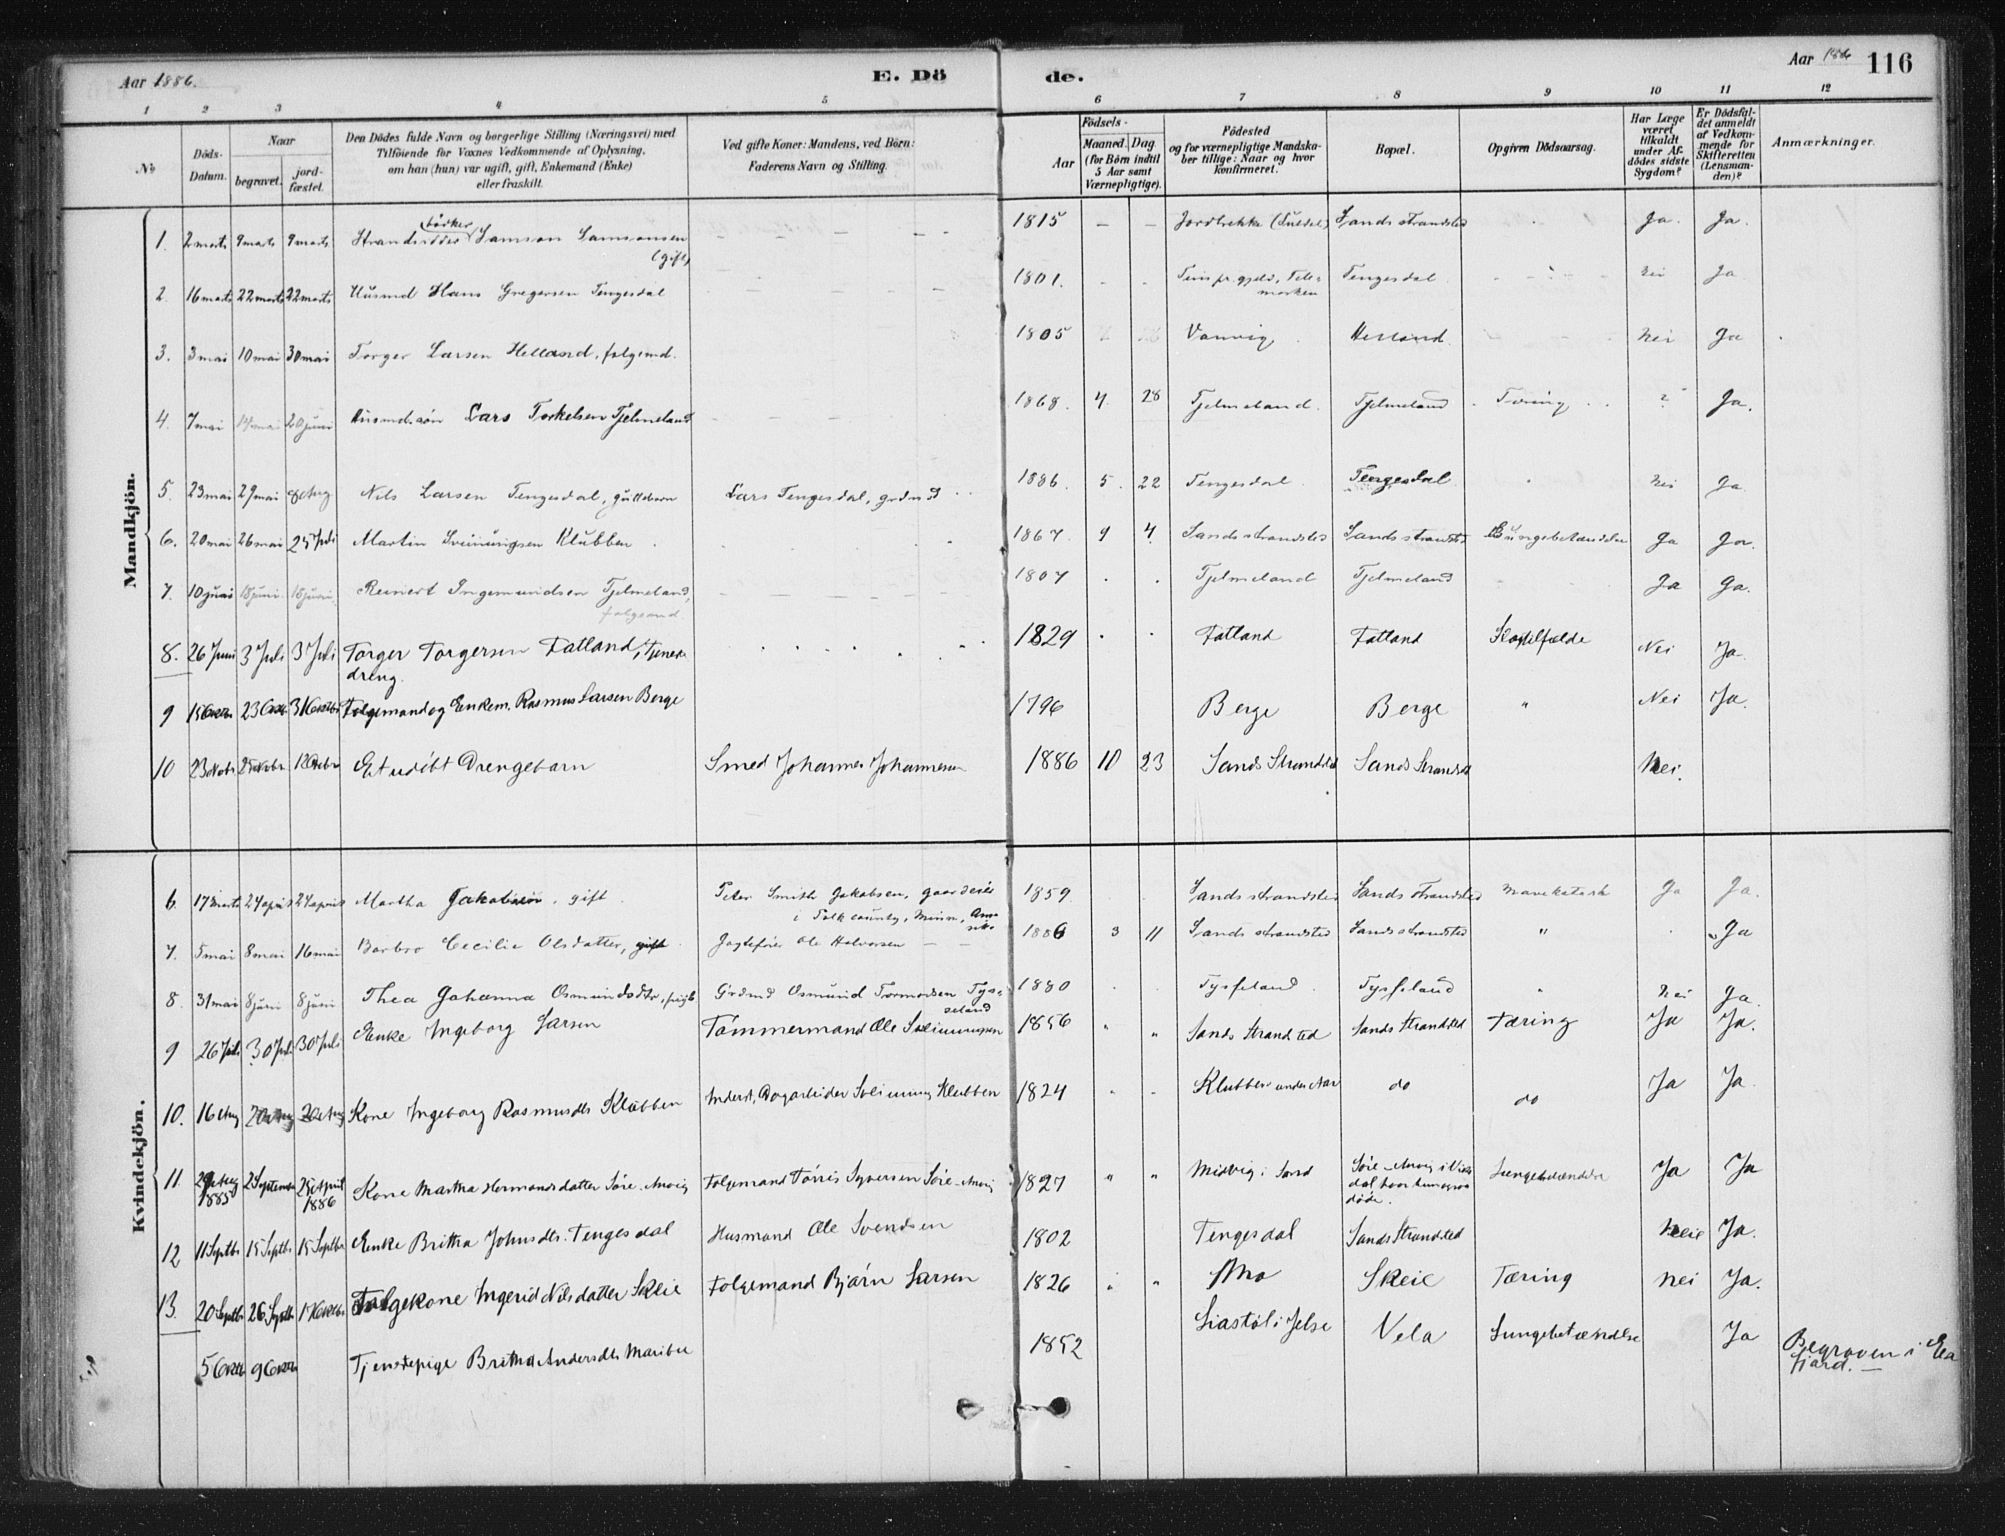 Aar 1886.
E. Dö
de.
Aar 1886
116
1 2 3 4 5 6 7 8 9 10 11 12
No
Döds-Datum.
Naar
begravet.
jord-fæstet.
Den Dödes fulde Navn og borgerlige Stilling (Næringsvei) med
Tilföiende for Voxnes Vedkommende af Oplysning,
om han (hun) var ugift, gift, Enkemand (Enke)
eller fraskilt.
Ved gifte Koner: Mandens, ved Börn:
Faderens Navn og Stilling.
Födsels-
Aar
Maaned. Dag
(for Börn indtil
5 Aar samt
Værnepligtige).
Födested
og for værnepligtige Mandska-
ber tillige: Naar og hvor
konfirmeret.
Bopæl.
Opgiven Dödsaarsag.
Har Læge
været
tilkaldt
under Af-
dödes sidste
Sygdom?
Er Dödsfal-
det anmeldt
af Vedkom-
mende for
Skifteretten
(Lensman-
den)?
Anmærkninger.
Mandkjön.
1. 2 marts 9 marts 9 marts Samson Samsonsen (gift) 1815 – – Sands strandsted Ja. Ja.
2. 16 marts 22 marts 22 marts Husmd Hans Gregersen Tengesdal 1801. Tengesdal nei Ja
3. 3 mai 10 mai 30 mai Torger Larsen Helland, folgemd. 1805 Vanvig Helland nei Ja
4. 7 mai 14 mai 20 juni Husmdssøn Lars Torkelsen Tjelmeland 1868. 4. 28 Tjelmeland. Tjelmeland Tæring ? Ja.
5. 23 mai 29 mai 8 Aug Nils Larsen Tengesdal, guttebarn Lars Tengesdal, grdmd 1886. 5. 22 Tengesdal Tengesdal nei Ja
6. 20 mai 26 mai 25 Juli Martin Sveinungsen Klubben 1867. 9 4. Sands strandsted Sands strandsted Lungebetændelse Ja Ja.
7. 10 juni 18 juni 18 juni Reinert Ingemundsen Tjelmeland, folgemd 1807 Tjelmeland Tjelmeland Ja Ja.
8. 26 Juni 3 Juli 3 Juli Torger Torgersen Fatland, Tjenestedreng. 1829 Fatland Fatland Nei Ja.
9 15 Octbr 23 Octbr 31 Octbr Folgemand og Enkem. Rasmus Larsen Berge 1796 Berge Berge " Nei Ja.
10 23 Novbr 25 Novbr 12 Decbr Et udöbt Drengebarn Smed Johannes Johannesen 1886 10 23 Sands Strandsted Sands Strandsted Nei.
Kvindekjön.
6. 17 marts 24 april 24 april Martha Jakobsen, gift. Peter Smith Jakobsen, gaardeier
i Polk county, Minn, Amerika 1859. Sands strandsted Sands strandsted Mavekatarh Ja Ja.
7. 5 mai 8 mai 16 mai Barbro Cecilie Olsdatter, gift Jagtefører Ole Halvorsen 1886 3 11 Sands strandsted Sands strandsted " Ja
8. 31 mai 8 juni 8 juni Thea Johanna Osmundsdtr, Grdmd Osmund Tormodsen Tysseland 1880 Tysseland. Tysseland " nei Ja.
9 26 Juli 30 Juli 30 Juli Enke Ingeborg Larsen Tömmermand Ole Sveinungsen 1856 " " Sands Strandsted Sands Strandsted Tæring Ja Ja.
10. 16 Aug 20 Aug 20 Aug Kone Ingeborg Rasmusdtr Klubben Inderst, Dagarbeider Sveinung Klubben 1824 Klubben under Aar do do Ja Ja
11. 29 Aug 1885 2 Septembr 25 April 1886 Kone Martha Hermandsdatter Söre-Anvig Folgemand Törris Syversen Söre-Anvig 1827 " " Midvig i Sand Söre-Anvig i Vikedal hvor hun ogsaa döde. Lungebetændelse Ja Ja
12 11 Septbr 15 Septbr 15 Septbr Enke Britha Johnsdtr. Tengesdal Husmand Ole Svendsen 1802 Tengesdal Sands Strandsted Neie Ja.
13. 20 Septbr 26 Septbr 17 Octbr Folgekone Ingerid Nilsdatter Skeie Folgemand Bjørn Larsen 1826 " Mo Skeie Tæring Nei Ja.
5 Octbr 9 Octbr Tjenstepige Britha Andersdtr 1852 i Jelse Vela Lungebetændelse Ja Begraven i
fjord. –